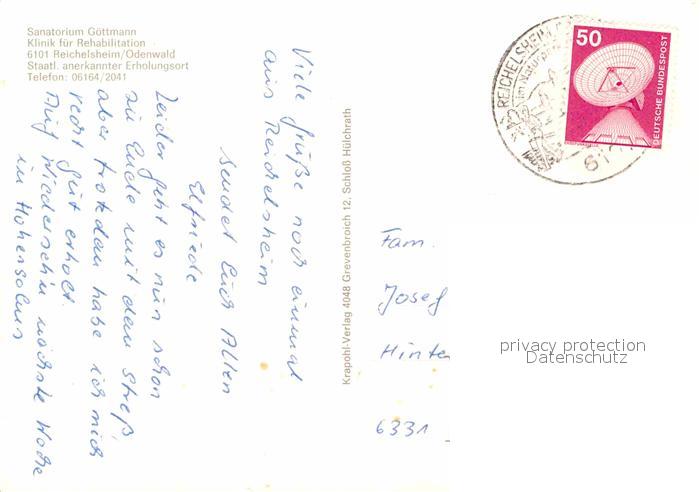 Sanatorium Göttmann
Klinik für Rehabilitation
6101 Reichelsheim/Odenwald
Staatl. anerkannter Erholungsort
Telefon: 06164/2041
Viele Grüße noch einmal
aus Reichelsheim
sendet Euch Allen
Elfriede
Leider geht es nun schon
zu Ende mit dem Streß
aber trotzdem habe ich mich
recht gut erholt.
Auf Wiedersehn nächste Woche
in Hohensolms
Krapohl-Verlag 4048 Grevenbroich 12, Schloß Hülchrath
REICHELSHEIM
im Naturpark
61
50
DEUTSCHE BUNDESPOST
Fam.
Josef
Hinte
6331
privacy protection
Datenschutz